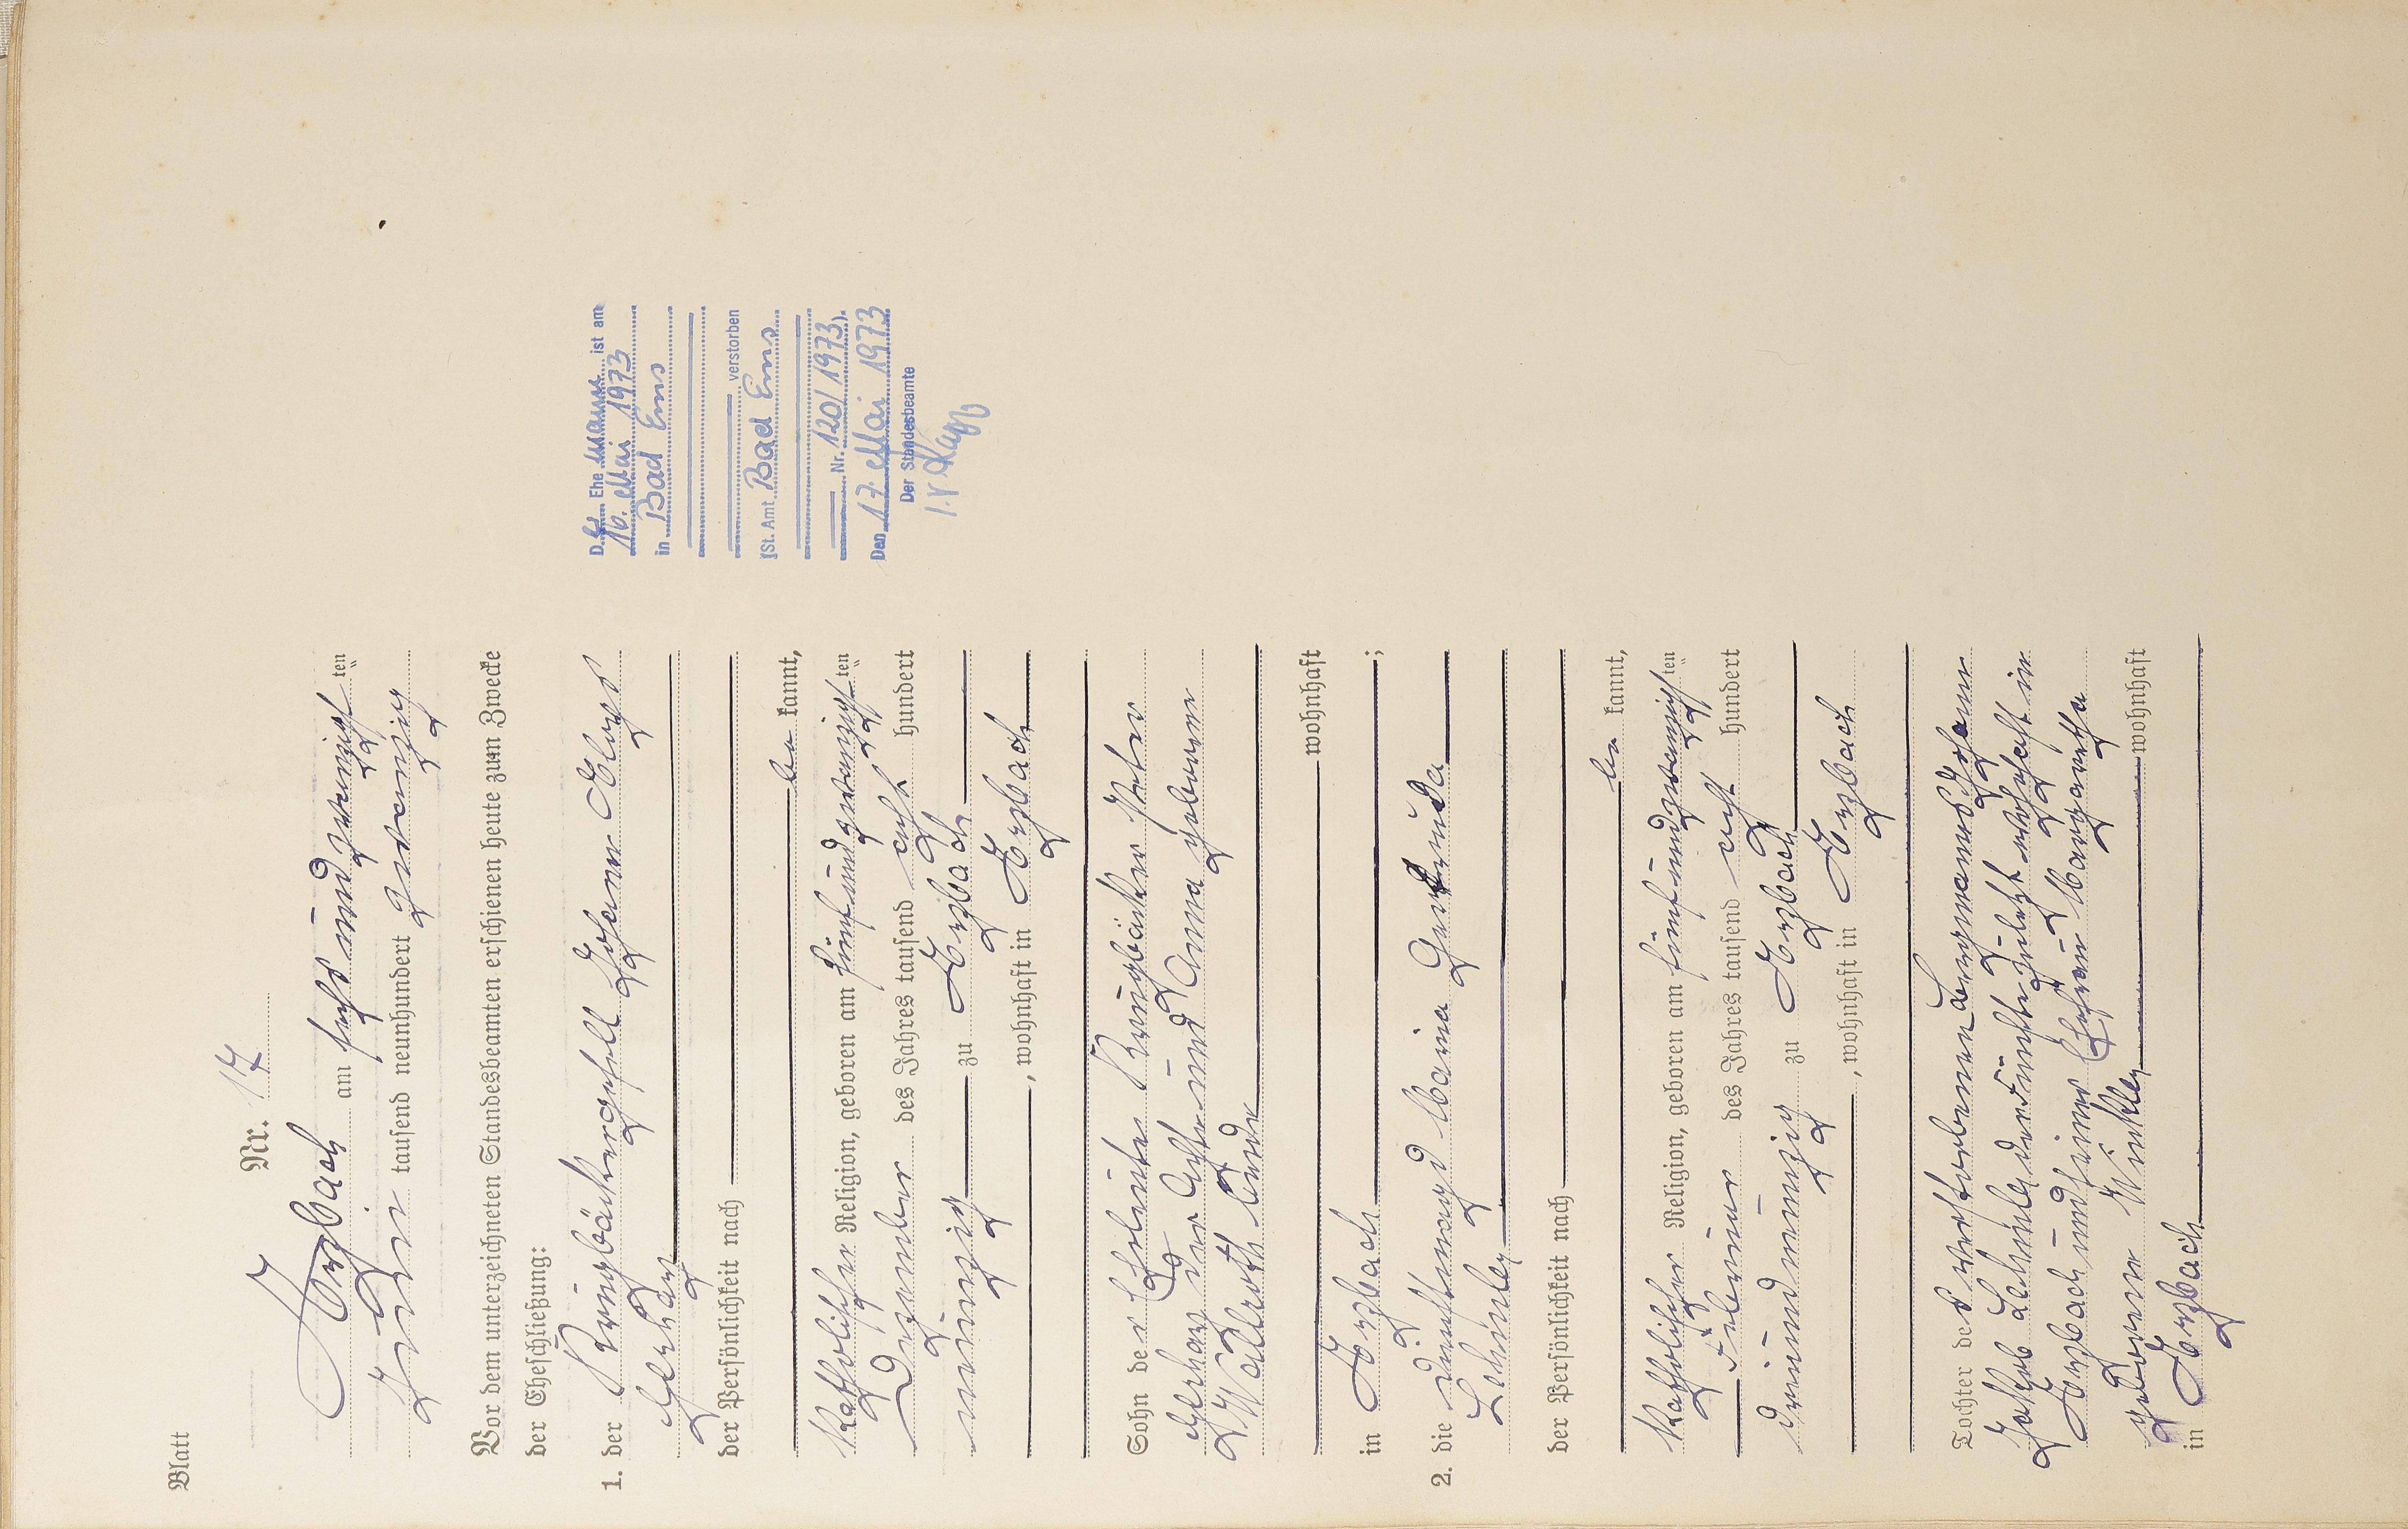 Blatt
Nr. 17
Arzbach am sechs und zwanzigsten
Juni tausend neunhundert zwanzig
Vor dem unterzeichneten Standesbeamten erschienen heute zum Zwecke
der Eheschließung:
1. der Krugbäckergesell Johann
Gerharz
der Persönlichkeit nach
kannt,
katholischer Religion, geboren am fünfundzwanzigsten
Dezember des Jahres tausend acht hundert
neunzig zu Arzbach
, wohnhaft in Arzbach
Sohn der Eheleute Krugbäcker Peter
Gerharz der und Anna geborene
wohnhaft
in Arzbach ;
2. die Dienstmagd Maria Gertruda
der Persönlichkeit nach
kannt,
katholischer Religion, geboren am fünfundzwanzigsten
Februar des Jahres tausend acht hundert
dreiundneunzig zu Arzbach
, wohnhaft in Arzbach
Tochter des verstorbenen Bergmanns Johann
Jakob zuletzt wohnhaft in
Arzbach und seiner Ehefrau Margaretha
geborene Winkler wohnhaft
in Arzbach
Der Ehemann ist am
16. Mai 1973
in Bad Ems
verstorben
(St. Amt Bad Ems
Nr. 120/1973).
Den 17. Mai 1973
Der Standesbeamte